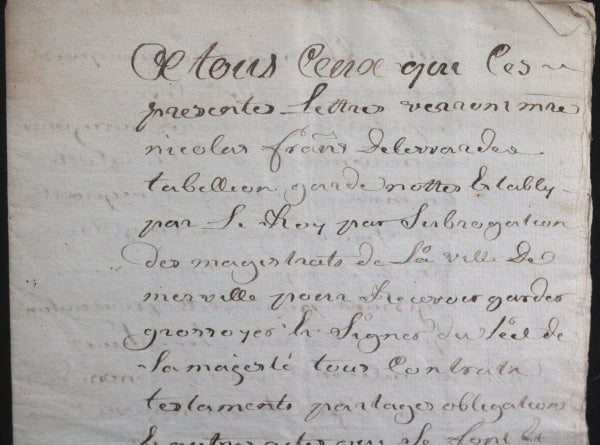 A tous Ceux qui Ces
presentes Lettres verront mre
nicolas frans
tabellion garde nottes Establÿ
par Le Roy par Subrogation
des magistrats de La ville De
merville pour Recevoir garder
grossoyer & Signer du scel de
Sa majesté tous Contrats
testaments partages obligations
& autres actes qui se font